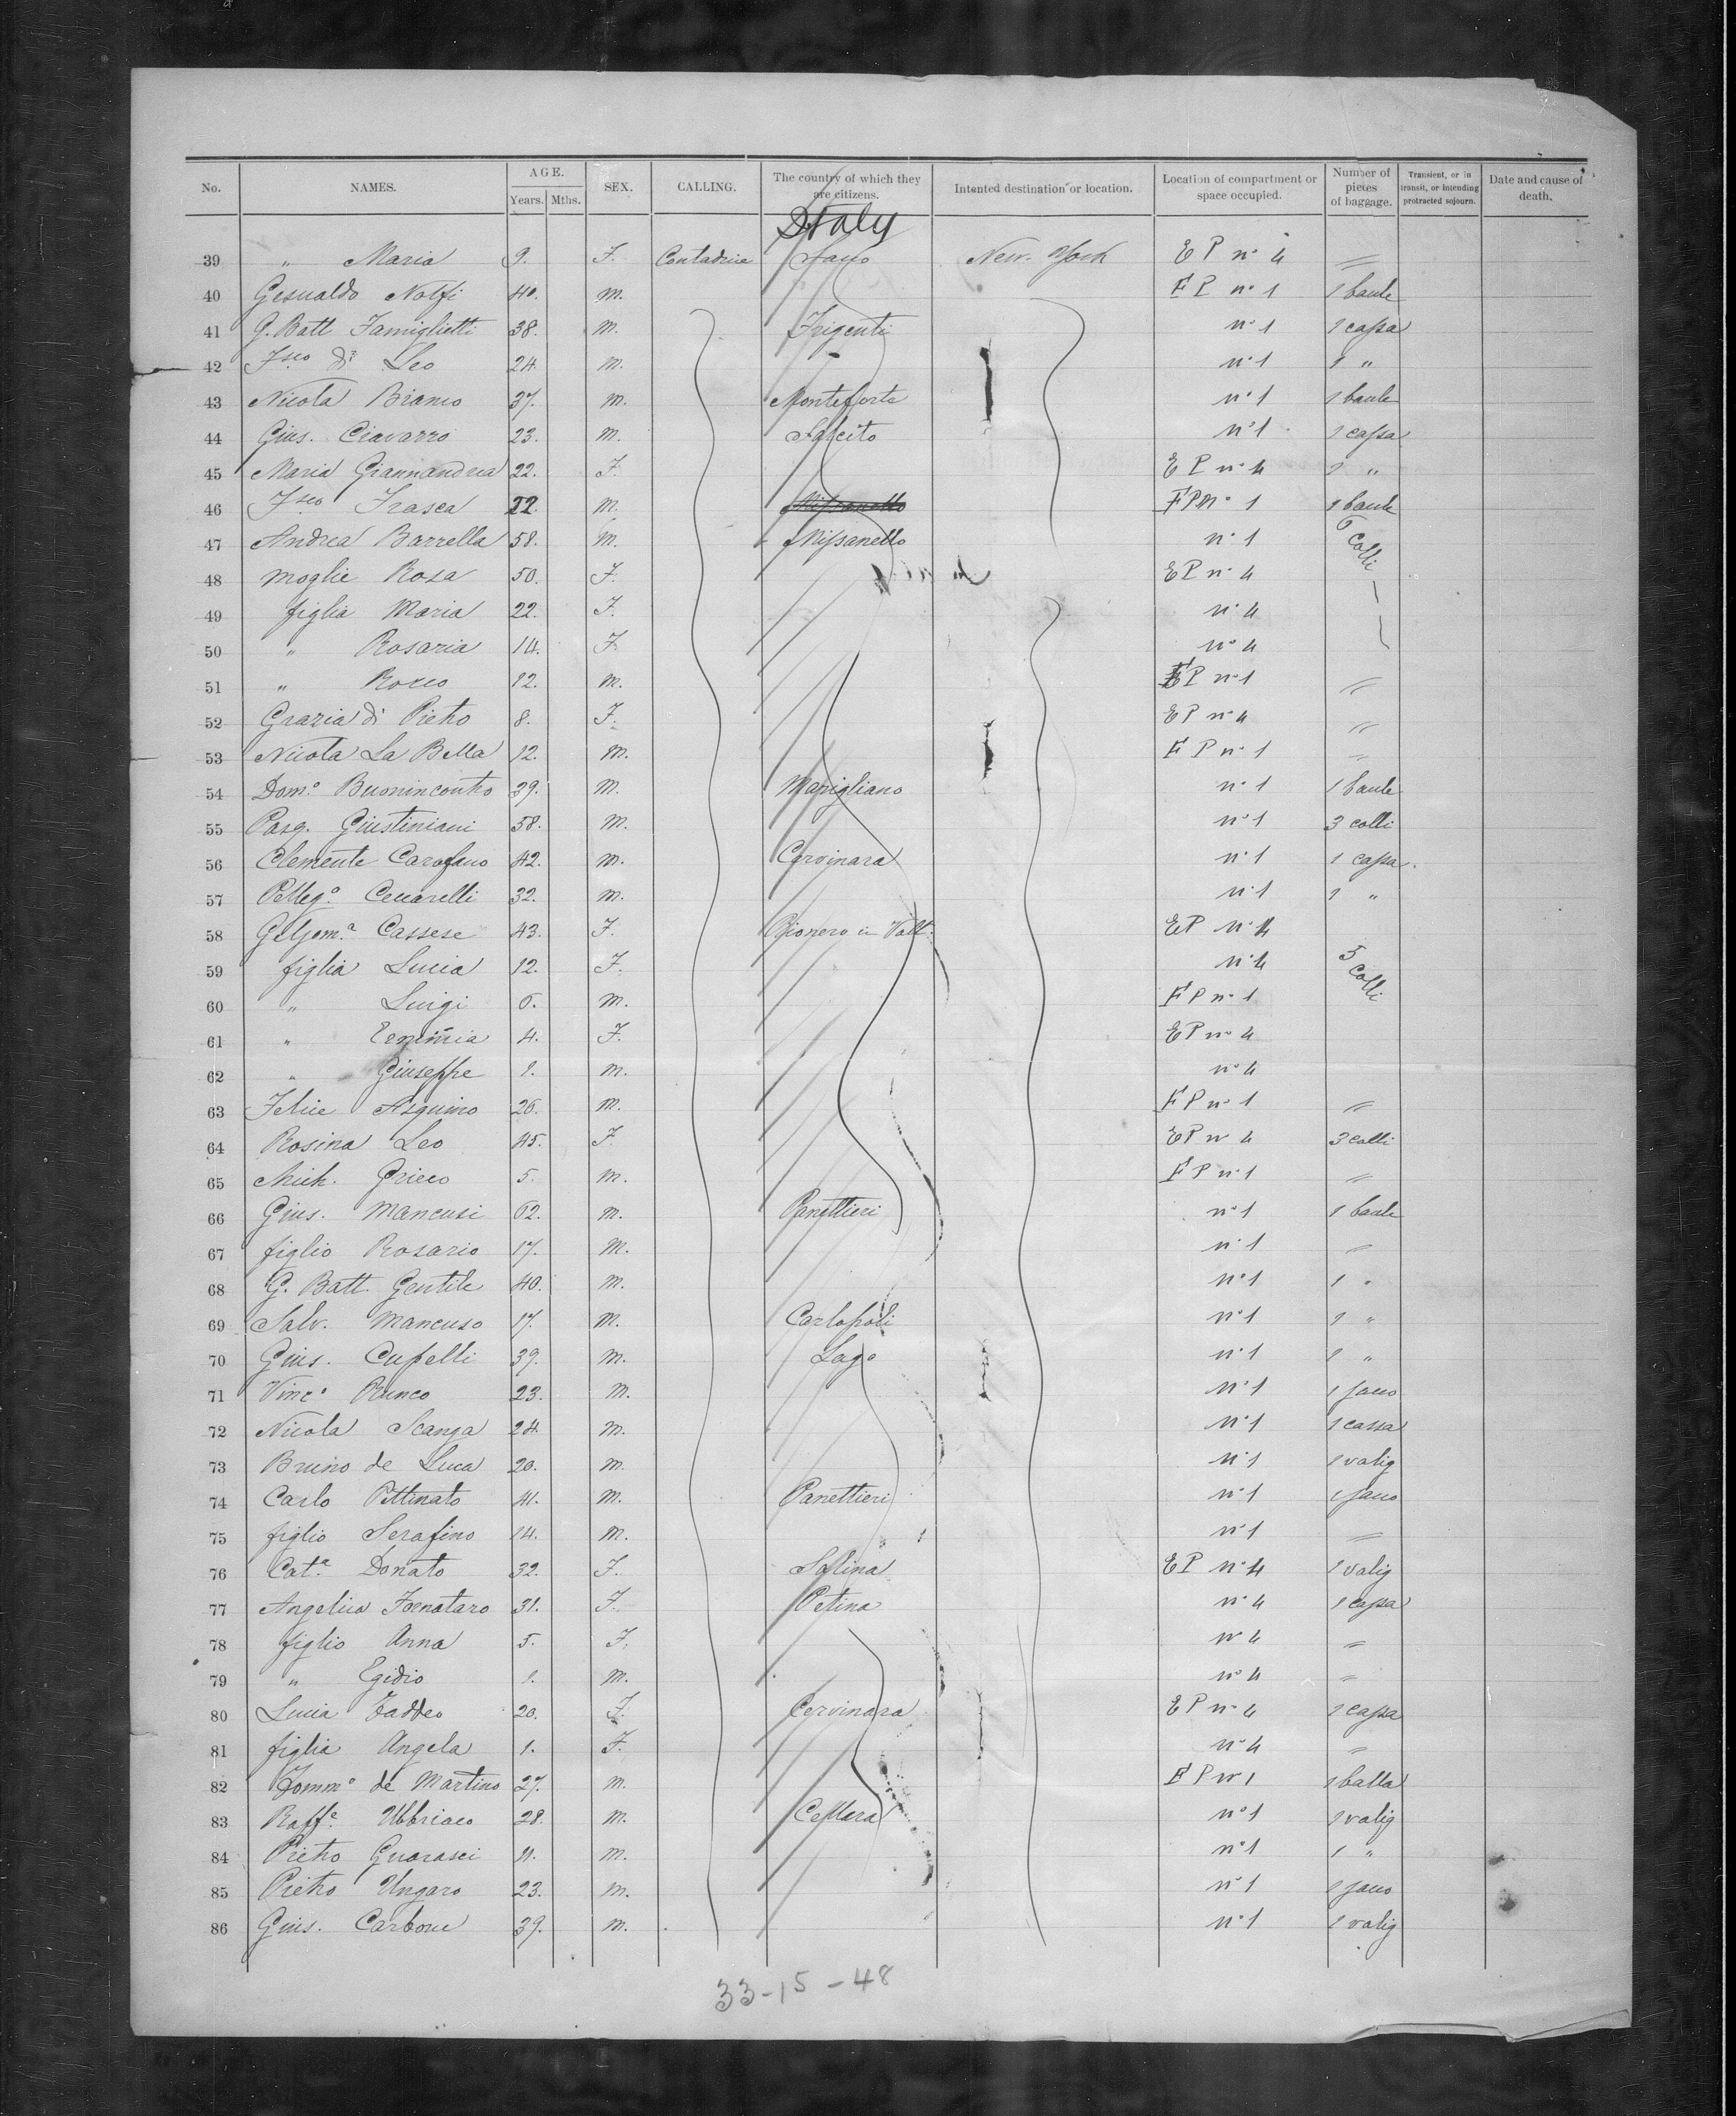 No. NAMES. AGE. Years. Mths. SEX. CALLING. The country of which they are citizens. Intented destination or location. Location of compartment or space occupied. Number of pieces of baggage. Transient, or in transit, or intending protracted sojourn. Date and cause of death.
Italy
39 " Maria 9. F. Contadina New-York E P n° 4 =
40 Gesualdo Nolfi 40. m. F P n° 1 1 baule
41 G. Batt Famiglietti 38. m. Frigenti n° 1 1 cassa
42 Fsco di Leo 24. m. n° 1 1 "
43 Nicola Bianco 37. m. Monteforte n° 1 1 baule
44 Gius. Ciavarro 23. m. Salcito n° 1 1 cassa
45 Maria Giannandrea 22. F. E P n° 4 1 "
46 Fsco Frasca 22. m. F P n° 1 1 baule
47 Andrea Barrella 58. m. Missanello n° 1 6 colli
48 moglie Rosa 50. F. E P n° 4
49 figlia Maria 22. F. n° 4
50 " Rosaria 14. F. n° 4
51 " Rocco 12. m. F P n° 1 =
52 Grazia di Pietro 8. F. E P n° 4 =
53 Nicola La Bella 12. m. F P n° 1 =
54 Dom.° Buonincontro 39. m. Marigliano n° 1 1 baule
55 Pasq. Giustiniani 58. m. n° 1 3 colli
56 Clemente Carofano 42. m. Cervinara n° 1 1 cassa.
57 Pelleg.° Cecarelli 32. m. n° 1 1 "
58 Gelsom.a Cassese 43. F. Rionero in Volt. E P n° 4
59 figlia Lucia 12. F. n° 4 5 colli
60 " Luigi 6. m. F P n° 1
61 " 4. F. E P n° 4
62 " Giuseppe 1. m. n° 4
63 Felice Asquino 26. m. F P n° 1 =
64 Rosina Leo 45. F. E P n° 4 3 colli
65 Mich. Grieco 5. m. F P n° 1 =
66 Gius. Mancusi 62. m. Panettieri n° 1 1 baule
67 figlio Rosario 17. m. n° 1 =
68 G. Batt. Gentile 40. m. n° 1 1 "
69 Salv. Mancuso 17. m. Carlopoli n° 1 1 "
70 Gius. Cupelli 39. m. Lago n° 1 1 "
71 Vinc° Runco 23. m. n° 1 1 sacco
72 Nicola Scanga 24. m. n° 1 1 cassa
73 Bruno de Luca 20. m. n° 1 1 valig
74 Carlo Pettinato 41. m. Panettieri n° 1 1 sacco
75 figlio Serafino 14. m. n° 1 =
76 Cat.a Donato 32. F. Salina E P n° 4 1 valig
77 Angelica Fornataro 31. F. Petina n° 4 1 cassa
78 figlio Anna 5. F. n° 4 =
79 " Egidio 1. m. n° 4 =
80 Lucia Taddeo 20. F. Cervinara E P n° 4 1 cassa
81 figlia Angela 1. F. n° 4 =
82 Tomm° de Martino 27. m. F P n° 1 1 balla
83 Raff.e Ubbriaco 28. m. Cellara n° 1 1 valig
84 Pietro Guarasci 11. m. n° 1 1 "
85 Pietro Ungaro 23. m. n° 1 1 sacco
86 Gius. Carbone 39. m. n° 1 1 valig
33-15-48